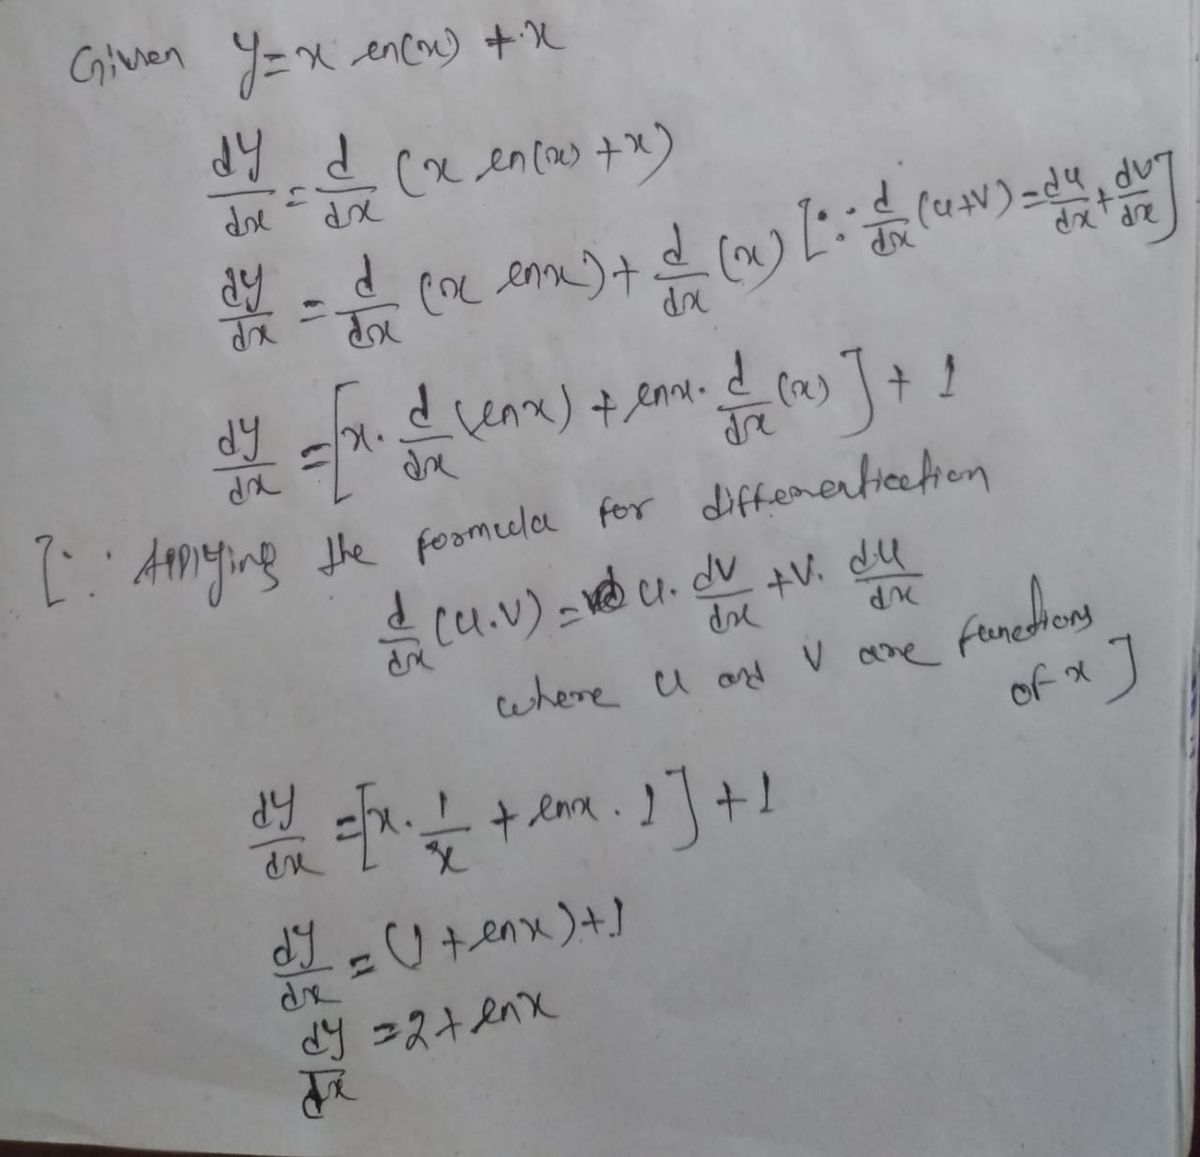 Given y = x ln(x) + x
dy/dx = d/dx (x ln(x) + x)
dy/dx = d/dx (x lnx) + d/dx (x) [∵ d/dx (u+v) = du/dx + dv/dx]
dy/dx = [x. d/dx (lnx) + lnx. d/dx (x)] + 1
[∵ Applying the formula for differentiation
d/dx (u.v) = u. dv/dx + v. du/dx
where u and v are functions
of x]
dy/dx = [x. 1/x + lnx . 1] + 1
dy/dx = (1 + lnx) + 1
dy/dx = 2 + lnx